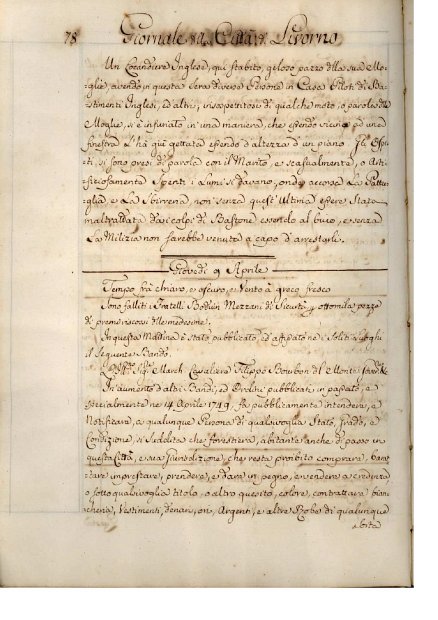 78 Giornale della Città di Livorno
Un Locandiere Inglese, qui stabilito, geloso pazzo della sua Mo-
glie, avendo in questa sera diverse Persone in Casa Piloti di Ba-
stimenti Inglesi, ed altri, insospettitosi di qualche moto, o parola della
Moglie, si è infuriato in una maniera, che essendo vicina ad una
finestra l'hà qui gettata essendo d'altezza d'un piano. Gl'Ospi-
ti, si sono presi di parola con il Marito, e scasualmente, o Arti-
fiziosamente Spenti i Lumi si davano, onde accorse La Pattu-
glia, e La Sbirreria, non senza quest'Ultima essere Stata
maltrattata dai colpi di Bastone essendo al buio, e senza
La Milizia non sarebbe venuta a capo d'arrestarli.
Giovedì 9 Aprile
Tempo frà chiaro, e oscuro, e Vento a greco fresco
Sono falliti i Fratelli Mezzani di Sicurtà p ottomila pezze
di premi riscossi delle medesime.
In questa Mattina è stato pubblicato, ed affisato ne i soliti luoghi
il Seguente Bando.
March Cavaliere Filippo Bourbon del Monte
In aumento d'altri Bandi, ed Ordini pubblicati in passato, e
specialmente ne 14 Aprile 1749. fà pubblicamente intendere, e
Notificare, a qualunque Persona di qualsivoglia Stato, grado, e
Condizione, sì Suddita che forestiera, abitante anche di passo in
questa Città, e sua Giurisdizione, che resta proibito comprare, barat-
tare imprestare, prendere, e dare in pegno, e vendere a credenza
o sotto qualsivoglia titolo, o altro quesito, colore, contrattare bian-
cheria, Vestimenti, denari, ori, Argenti, e altre Robe di qualunque
sorta